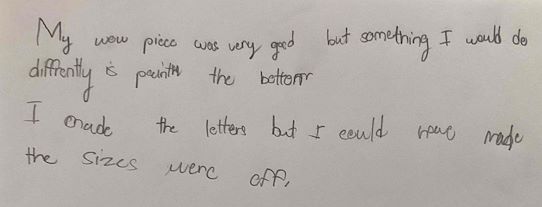 My wow piece was very good but something I would do
diffrently is paintn the bottom
I made the letters but I could have made
the sizes were off.